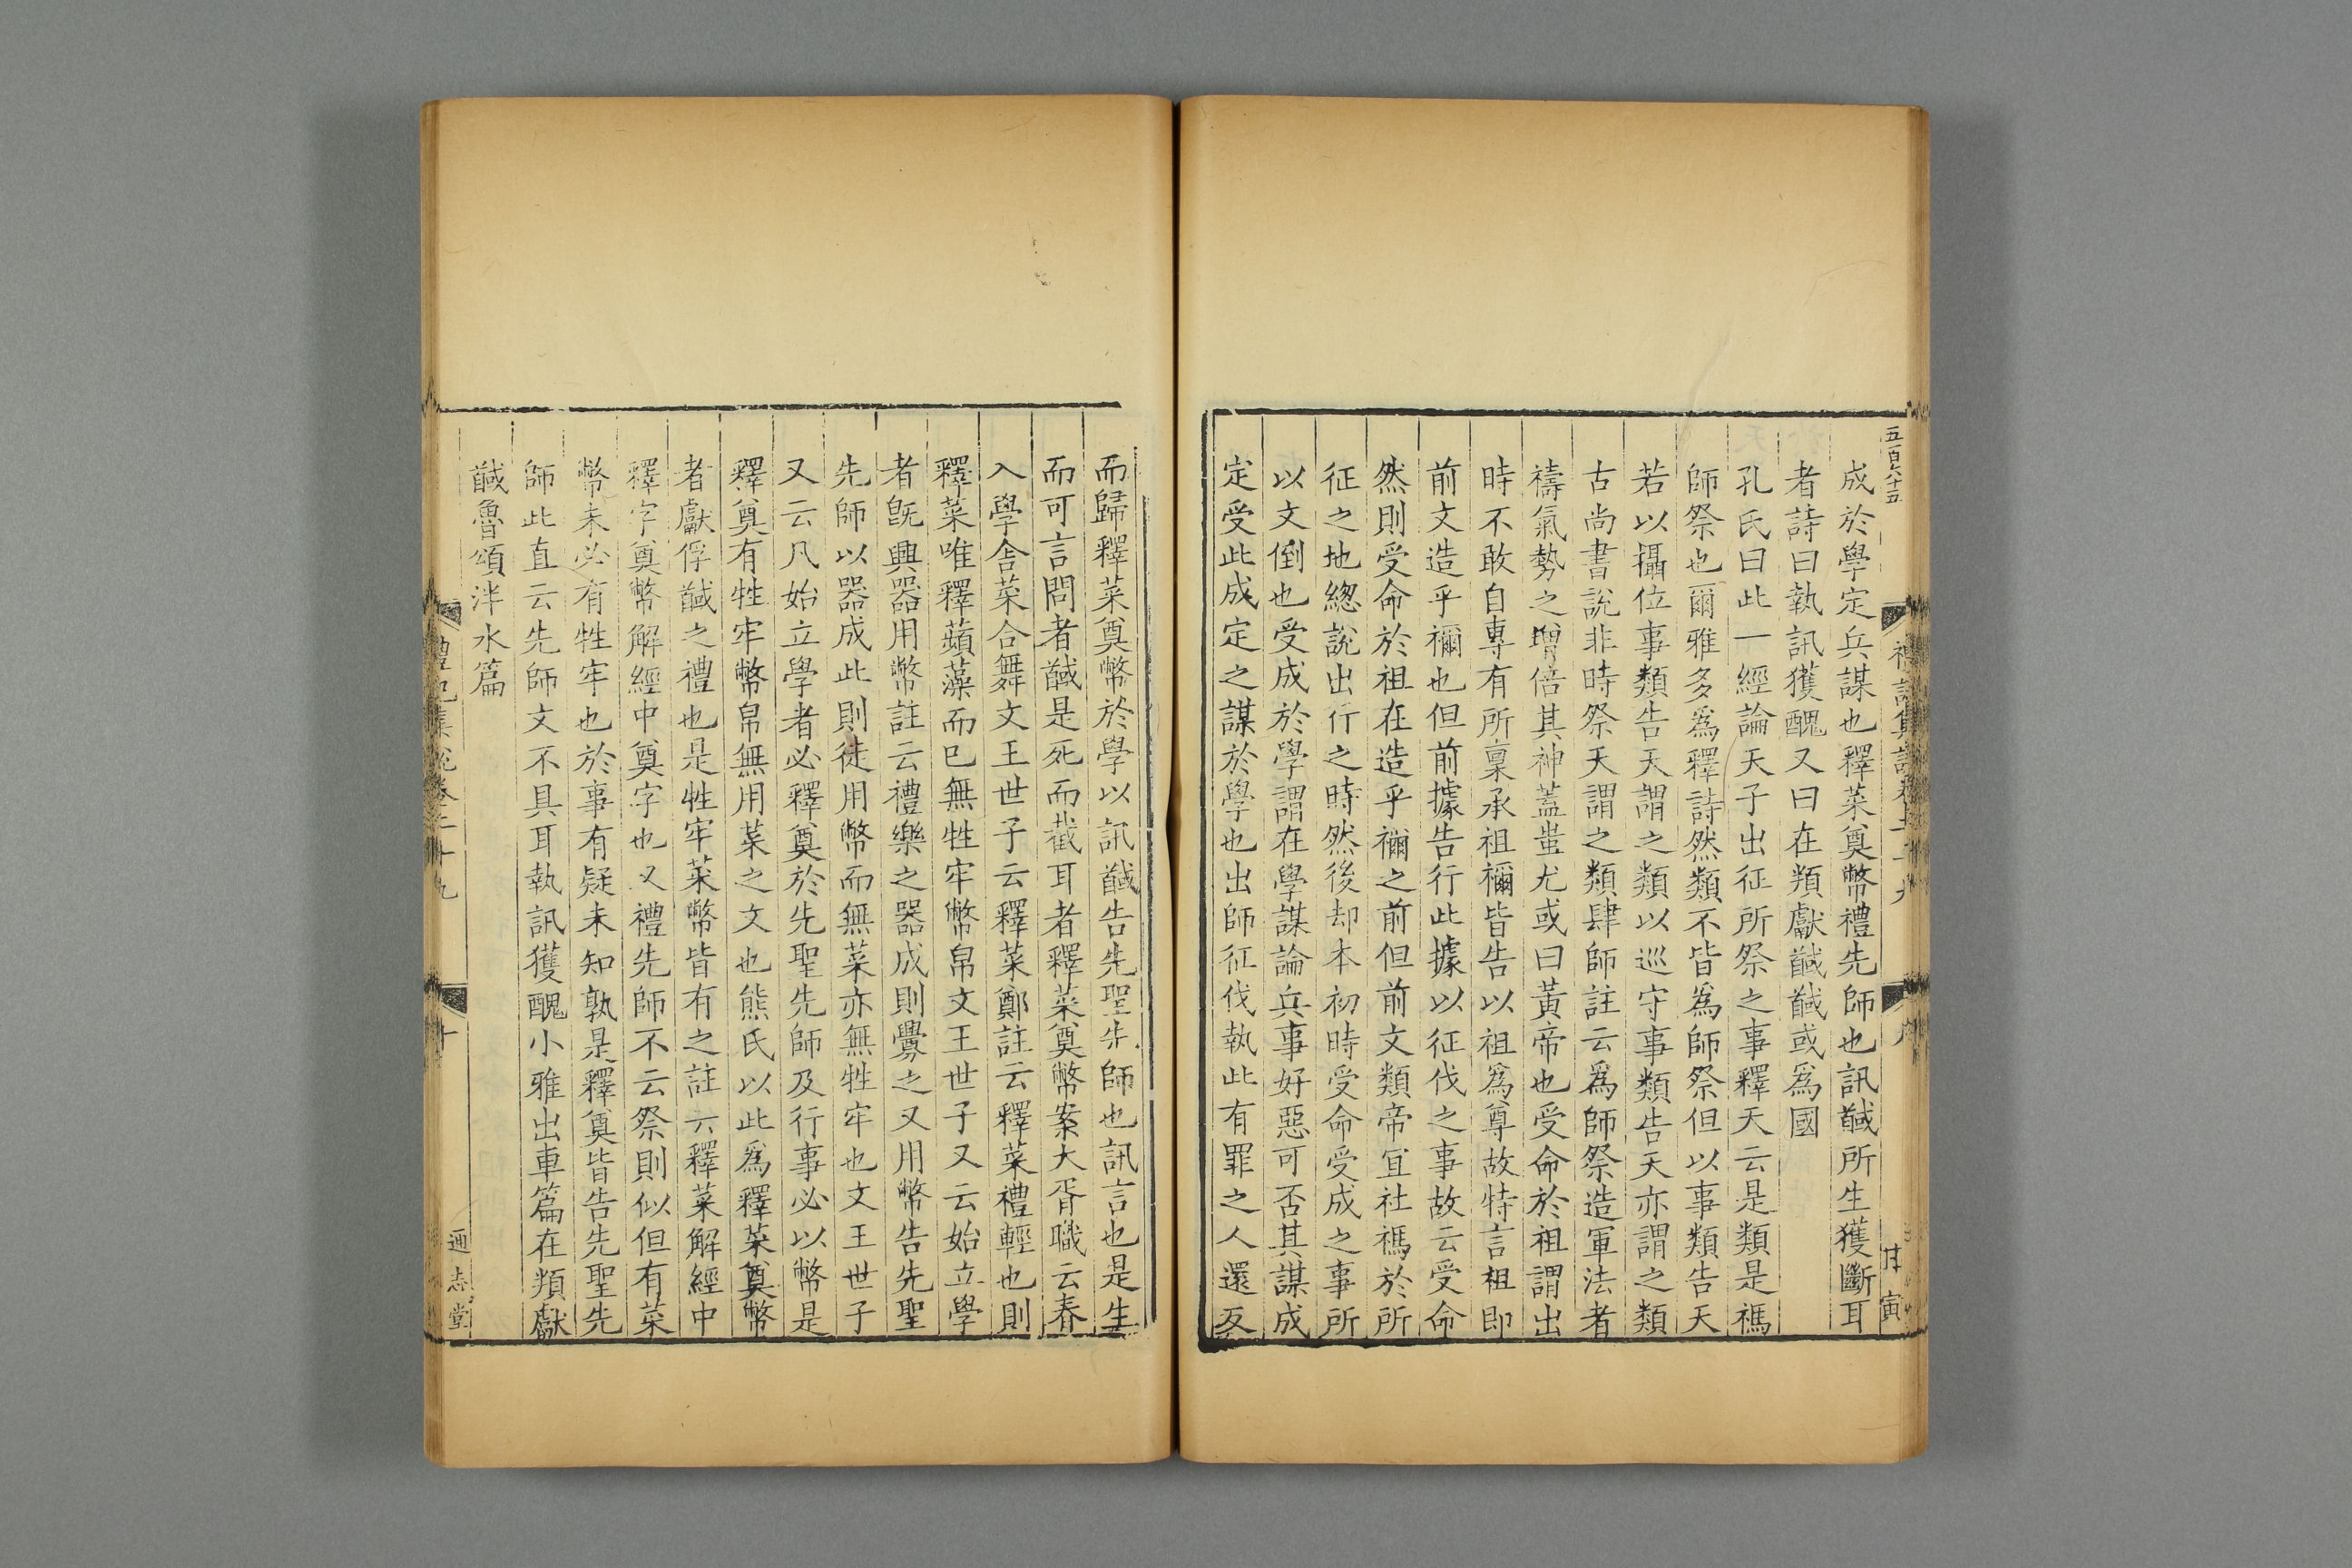 五百六十五
成於學定兵謀也釋菜奠幣禮先師也訊馘所生獲斷耳
者詩曰執訊獲醜又曰在頖獻馘馘或爲國
孔氏曰此一經論天子出征所祭之事釋天云是類是禡
師祭也爾雅多爲釋詩然類不皆爲師祭但以事類告天
若以攝位事類告天謂之類以巡守事類告天亦謂之類
古尚書說非時祭天謂之類肆師註云爲師祭造軍法者
禱氣勢之增倍其神蓋蚩尤或曰黃帝也受命於祖謂出
時不敢自專有所稟承祖禰皆告以祖爲尊故特言祖即
前文造乎禰也但前據告行此據以征伐之事故云受命
然則受命於祖在造乎禰之前但前文類帝宜社禡於所
征之地緫說出行之時然後却本初時受命受成之事所
以文倒也受成於學謂在學謀論兵事好惡可否其謀成
定受此成定之謀於學也出師征伐執此有罪之人還反
而歸釋菜奠幣於學以訊馘告先聖先師也訊言也是生
而可言問者馘是死而截耳者釋菜奠幣案大胥職云春
入學舍菜合舞文王世子云釋菜鄭註云釋菜禮輕也則
釋菜唯釋蘋藻而已無牲牢幣帛文王世子又云始立學
者旣興器用幣註云禮樂之器成則釁之又用幣告先聖
先師以器成此則徒用幣而無菜亦無牲牢也文王世子
又云凡始立學者必釋奠於先聖先師及行事必以幣是
釋奠有牲牢幣帛無用菜之文也熊氏以此爲釋菜奠幣
者獻俘馘之禮也是牲牢菜幣皆有之註云釋菜解經中
釋字奠幣解經中奠字也又禮先師不云祭則似但有菜
幣未必有牲牢也於事有疑未知孰是釋奠皆告先聖先
師此直云先師文不具耳執訊獲醜小雅出車篇在頖獻
馘魯頌泮水篇
禮記集說卷二十九
十
通志堂